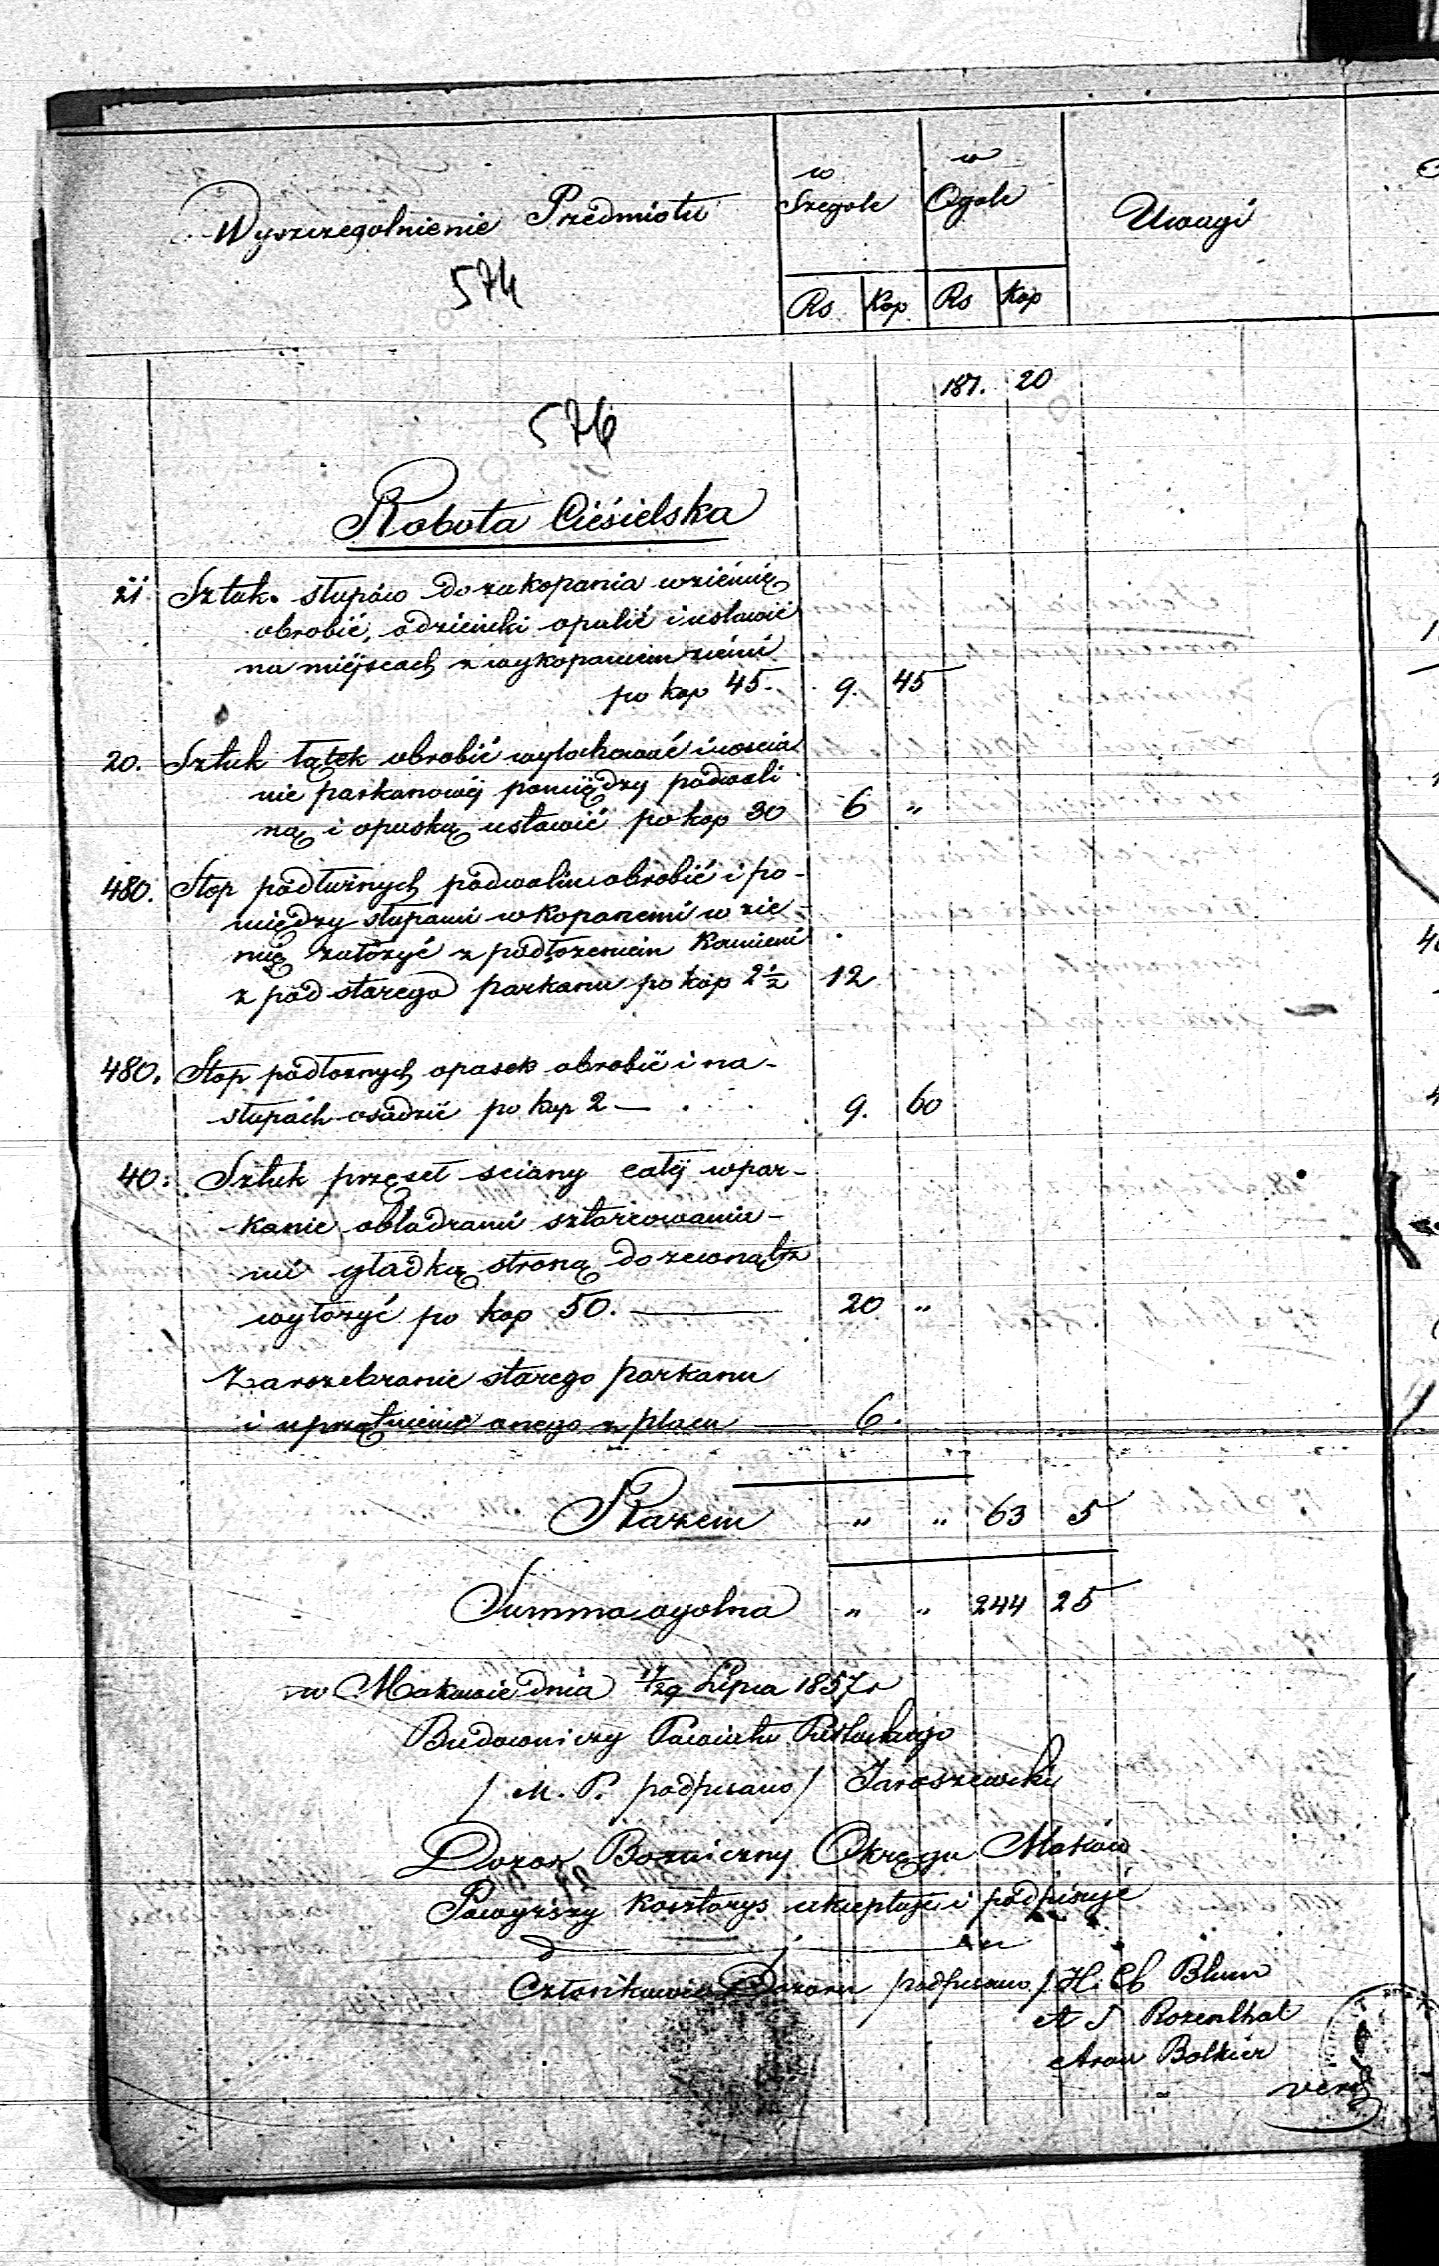 Wyszczegolnienie Przedmiotu
w Szegole
w Ogole
Uwagi
574
Rs Kop Rs Kop
187. 20
576
Robota Ciésielska
21 Sztuk. słupów do zakopania w ziémię
obrobić, odziemki opalić i ustawić
na miéjscach z wykopaniem ziémi
po kop 45. 9. 45
20. Sztuk łątek obrobić wyfochować i w ościa
nie parkanowéj pomiędzy podwali
ną i opaską ustawić po kop 30 6 „
480. Stop podłużnych podwalin obrobić i po-
między słupami wkopanemi w zie-
mię założyć z podłożeniem kamieni
z pod starego parkanu po kop 2½ 12
480. Stop podłożnych opasek obrobić i na-
słupach osadzić po kop 2 — 9. 60
40. Sztuk przęseł sciany całéj w par-
kanie obladrami sztorcowania-
mi gładką stroną do zewnątrz
wyłożyć po kop 50. — 20 „
Za rozebranie starego parkanu
i uprzątnienie onego z placu — 6.
Razem „ „ 63 5
Summa ogolna „ „ 244 25
w Makowie dnia 17/29 Lipca 1857 r
Budowniczy Powiatu Pułtuskiego
/ M. P. podpisano / Jaroszewski
Dozor Boźniczny Okręgu Maków
Powyższy kosztorys akceptuje i podpisuje
Członkowie Dozoru podpisano / H. Ch Blum
A S Rozenthal
Aron Bolkier